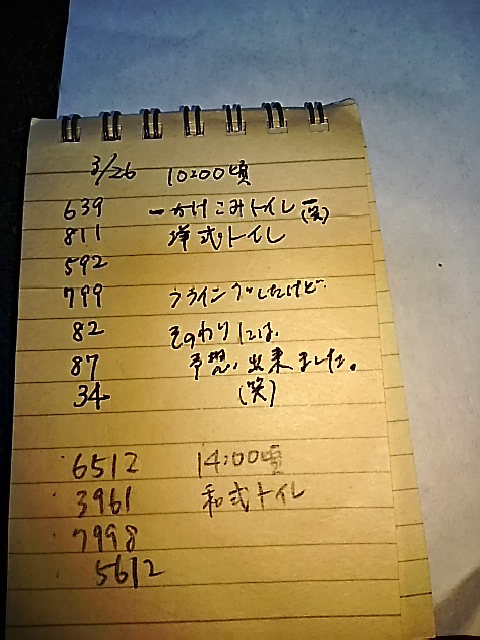 3/26 10:00頃
639 一かけこみトイレ(笑)
811 洋式トイレ
592
799 フライングしたけど
82 そのわりには、
87 予想出来ました。
34 (笑)
6512 14:00頃
3961 和式トイレ
7998
5612